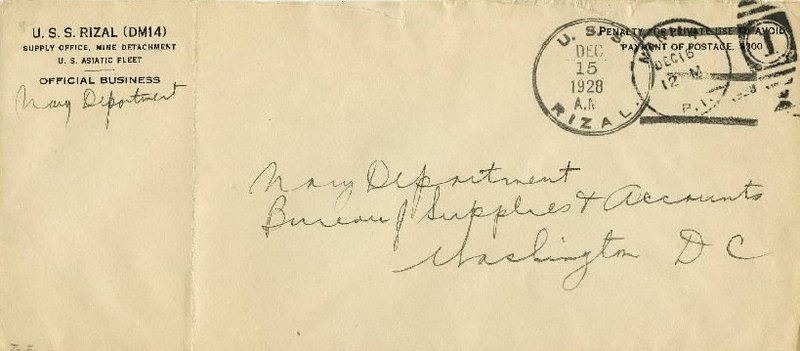 U. S. S. RIZAL (DM14)
SUPPLY OFFICE, MINE DETACHMENT
U. S. ASIATIC FLEET
OFFICIAL BUSINESS
Navy Department
PENALTY FOR PRIVATE USE TO AVOID
PAYMENT OF POSTAGE, $300
U. S. S.
DEC
15
1928
A.M
RIZAL.
DEC 16
12 M
P. I.
1
Navy Department
Bureau of Supplies & Accounts
Washington D C